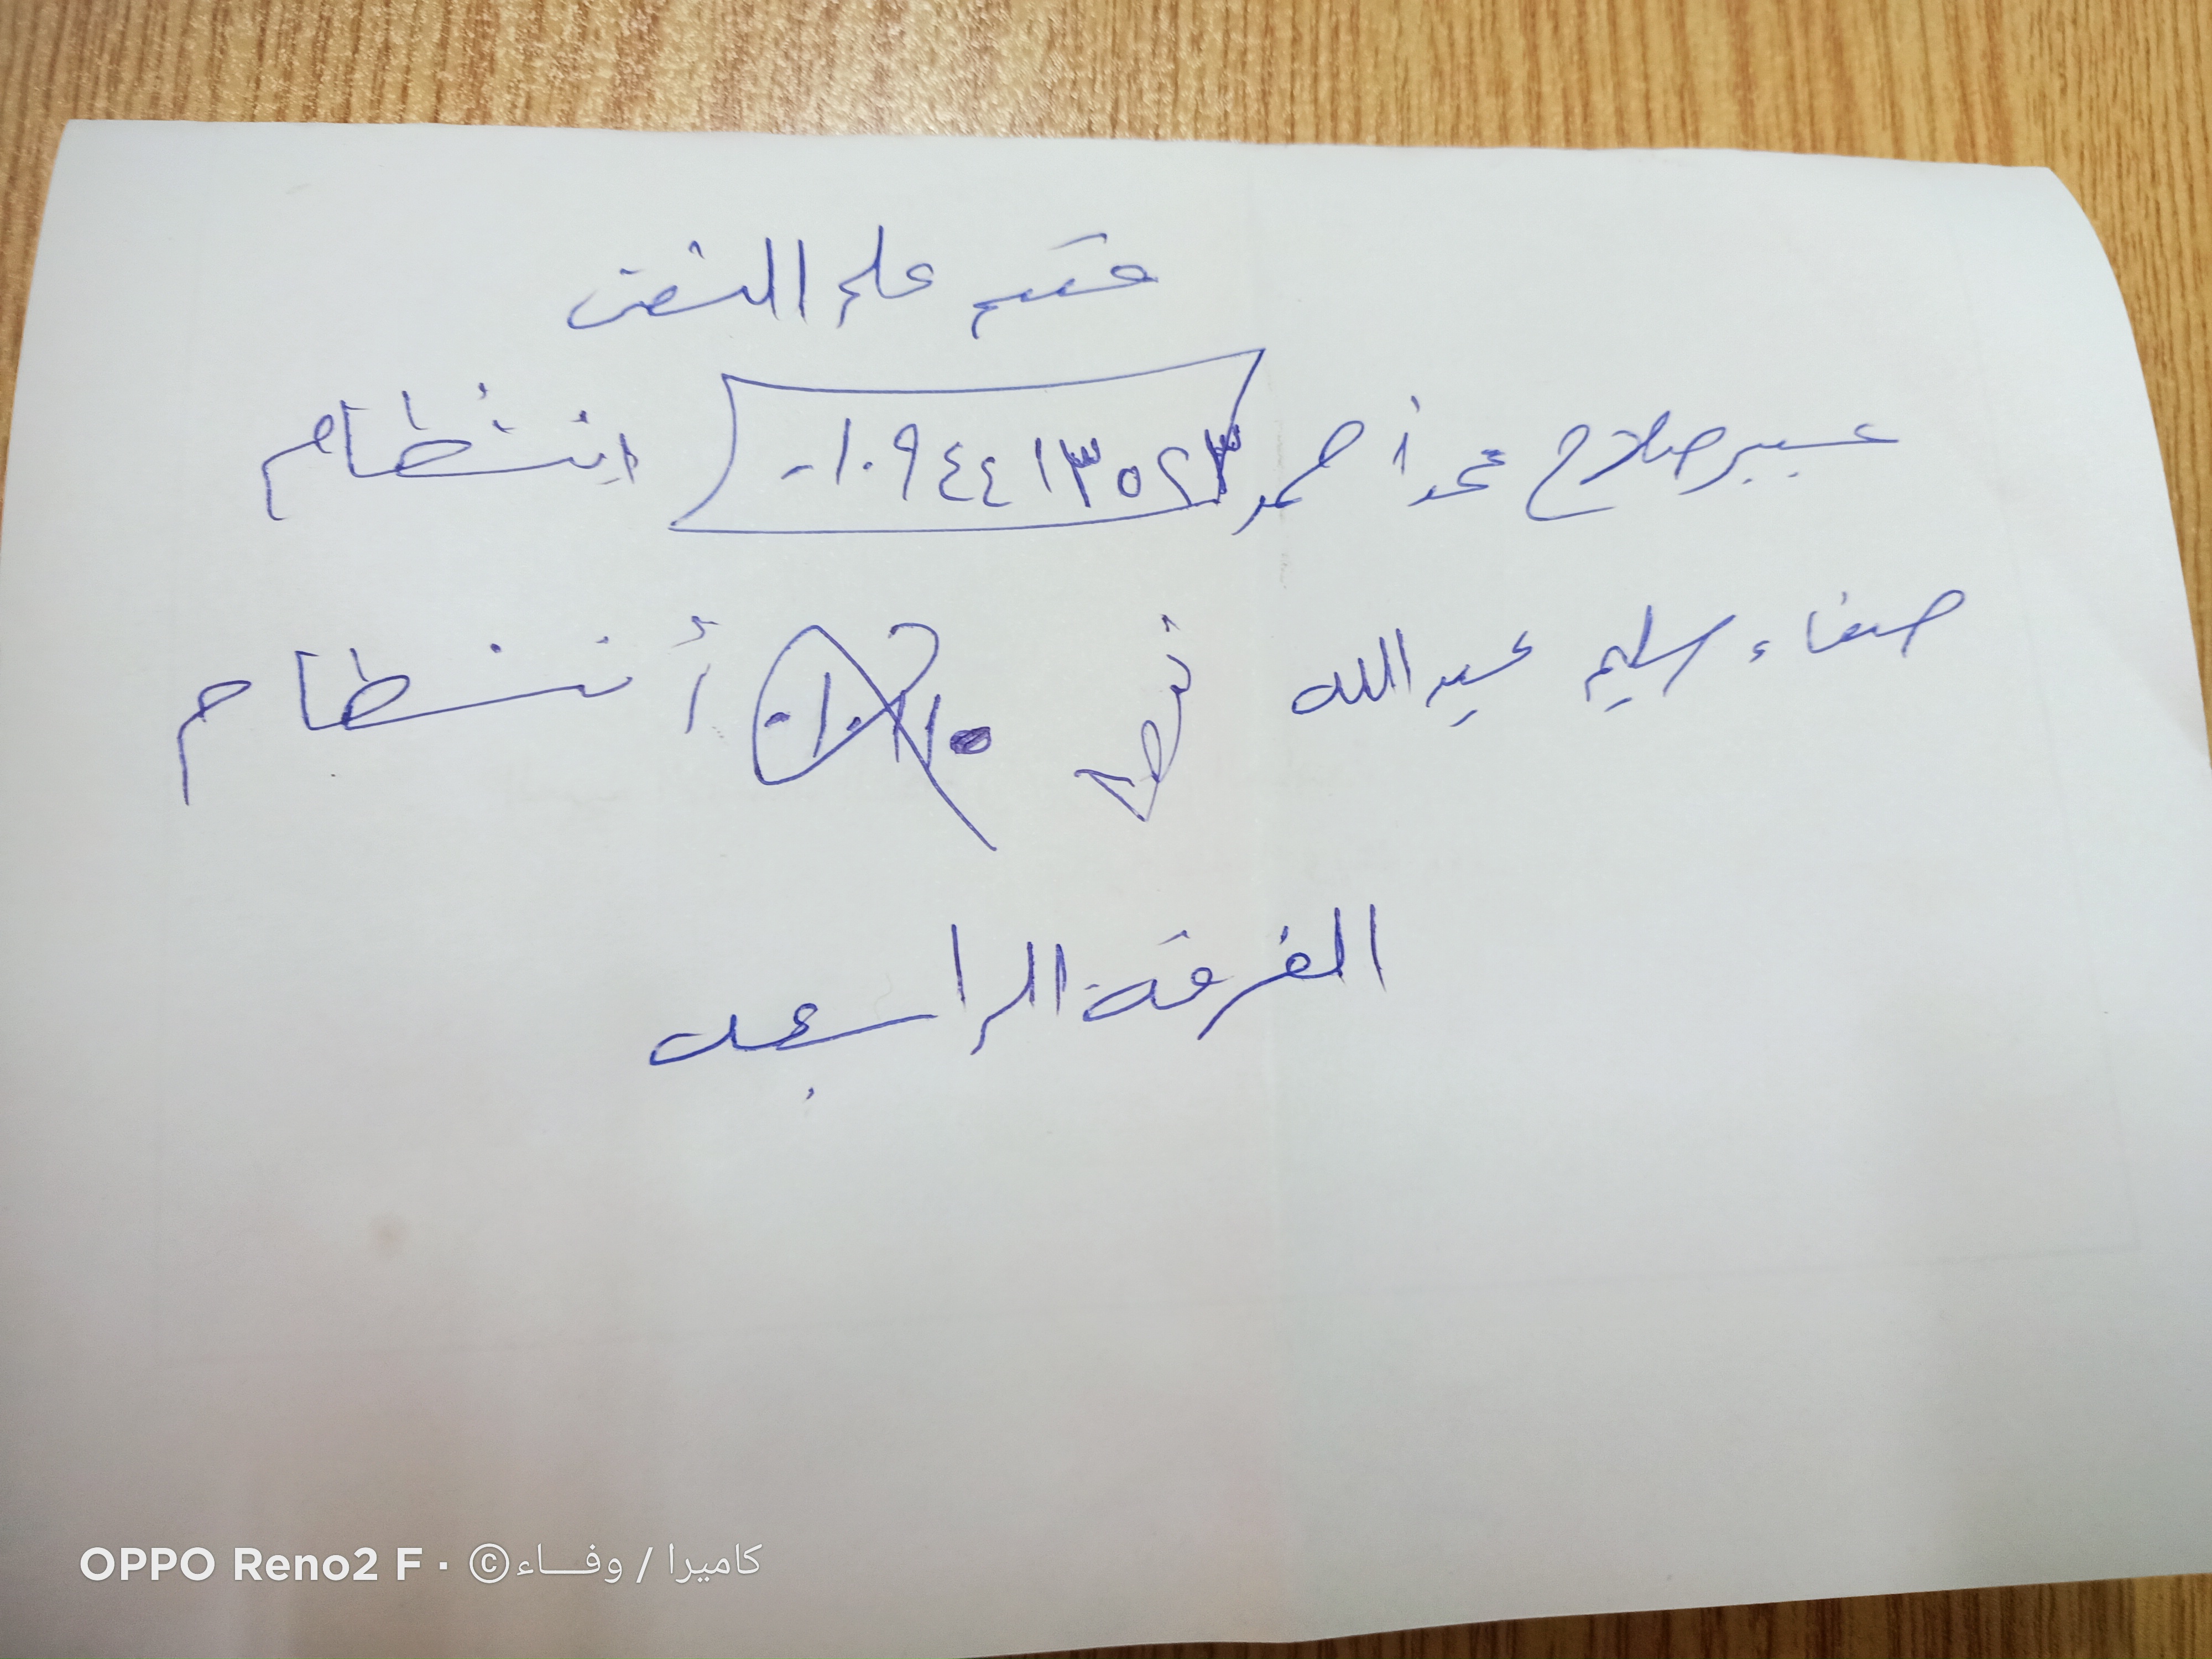 قسم علم النفس
عبير صلاح محمد أحمد ٠١٠٩٤٤١٣٥٢٣ انتظام
صفاء سليم عبدالله أنتظام
الفرقة الرابعه
OPPO Reno2 F · © كاميرا / وفــاء